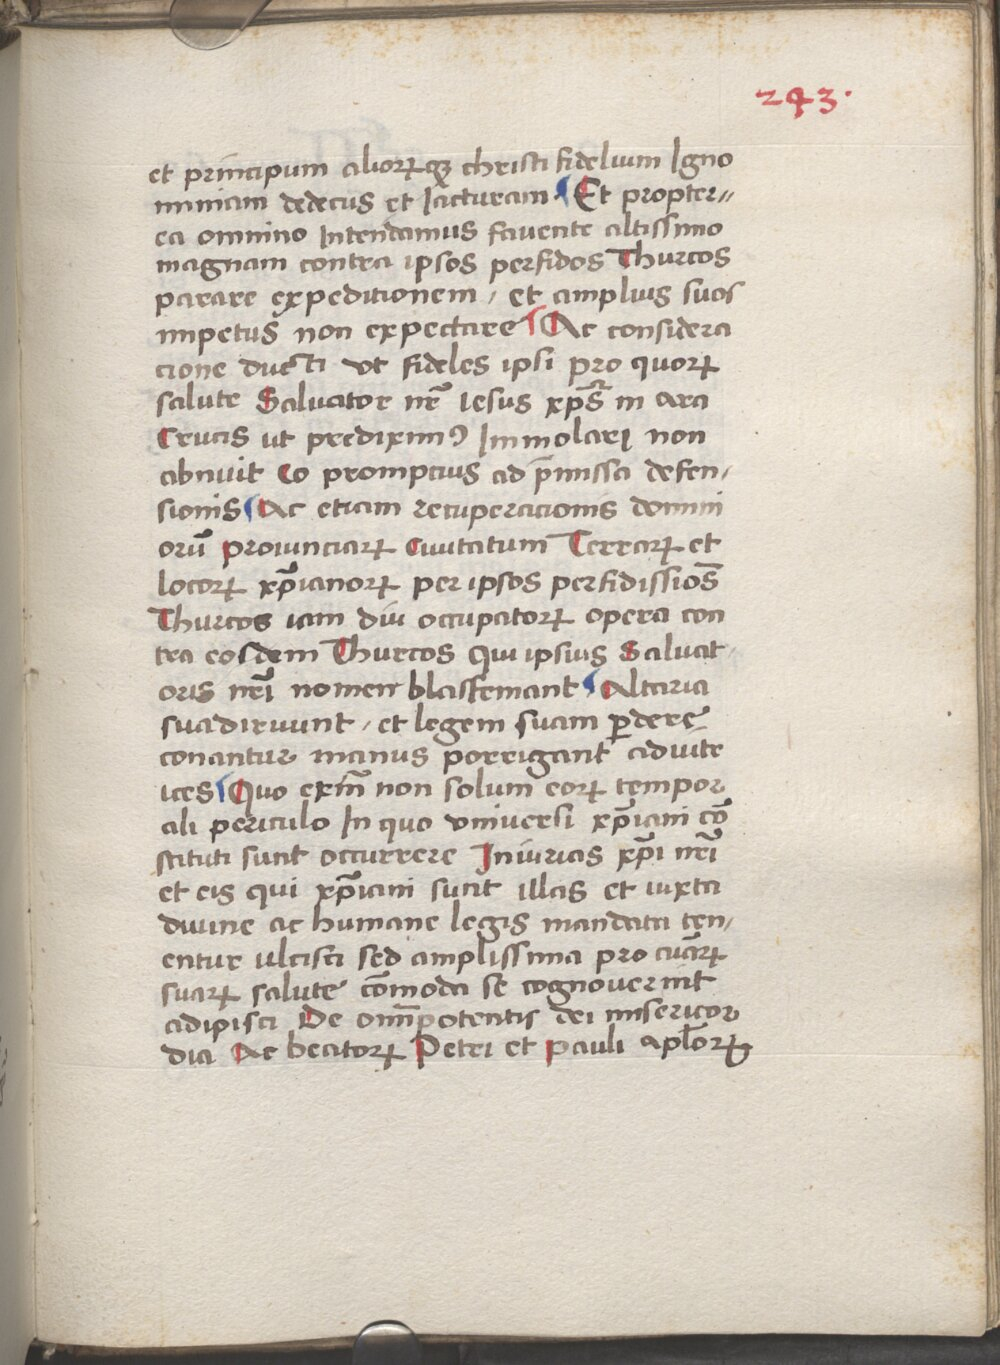 243.
et principum aliorꝝqꝫ christi fidelium Igno
miniam dedecus et Iacturam ¶ Et propter〃
ea omnino Intendamus favente altissimo
magnam contra ipsos perfidos Thurcos
parare expeditionem, et amplius suos
impetus non expectare ¶ Ac considera
cione ducti vt fideles ipsi pro quorꝝ
salute Salvator nr̄ Iesus xp̄s in ara
Crucis ut predixim9 Immolari non
abnuit Eo promptius ad p̄missa defen,
sionis ¶ Ac etiam recuperacionis domini
orū provinciarꝝ Civitatum Terrarꝝ et
locorꝝ xp̄ianorꝝ per ipsos perfidissiōs
Thurcos iam diu occupatorꝝ opera con
tra eosdem Thurcos Qui ipsius Salvat,
oris nrī nomen blasfemant ¶ Altaria
sua diruunt, et legem suam ꝑdere
conantur manus porrigant adiutr
ices ¶ Quo exm̄ non solum eorꝝ tempor
ali periculo In quo vniversi xp̄iani cō
stituti sunt occurrere Iniurias xp̄i nrī
et eis qui xp̄iani sunt illas et iuxta
divine ac humane legis mandata ten,
entur ulcisci sed amplissima pro aīarꝝ
suarꝝ salute cōmoda se cognoverint
adipisci De om̄ipotentis dei misericor
dia Ac beatorꝝ Petri et Pauli apl̄orꝝ